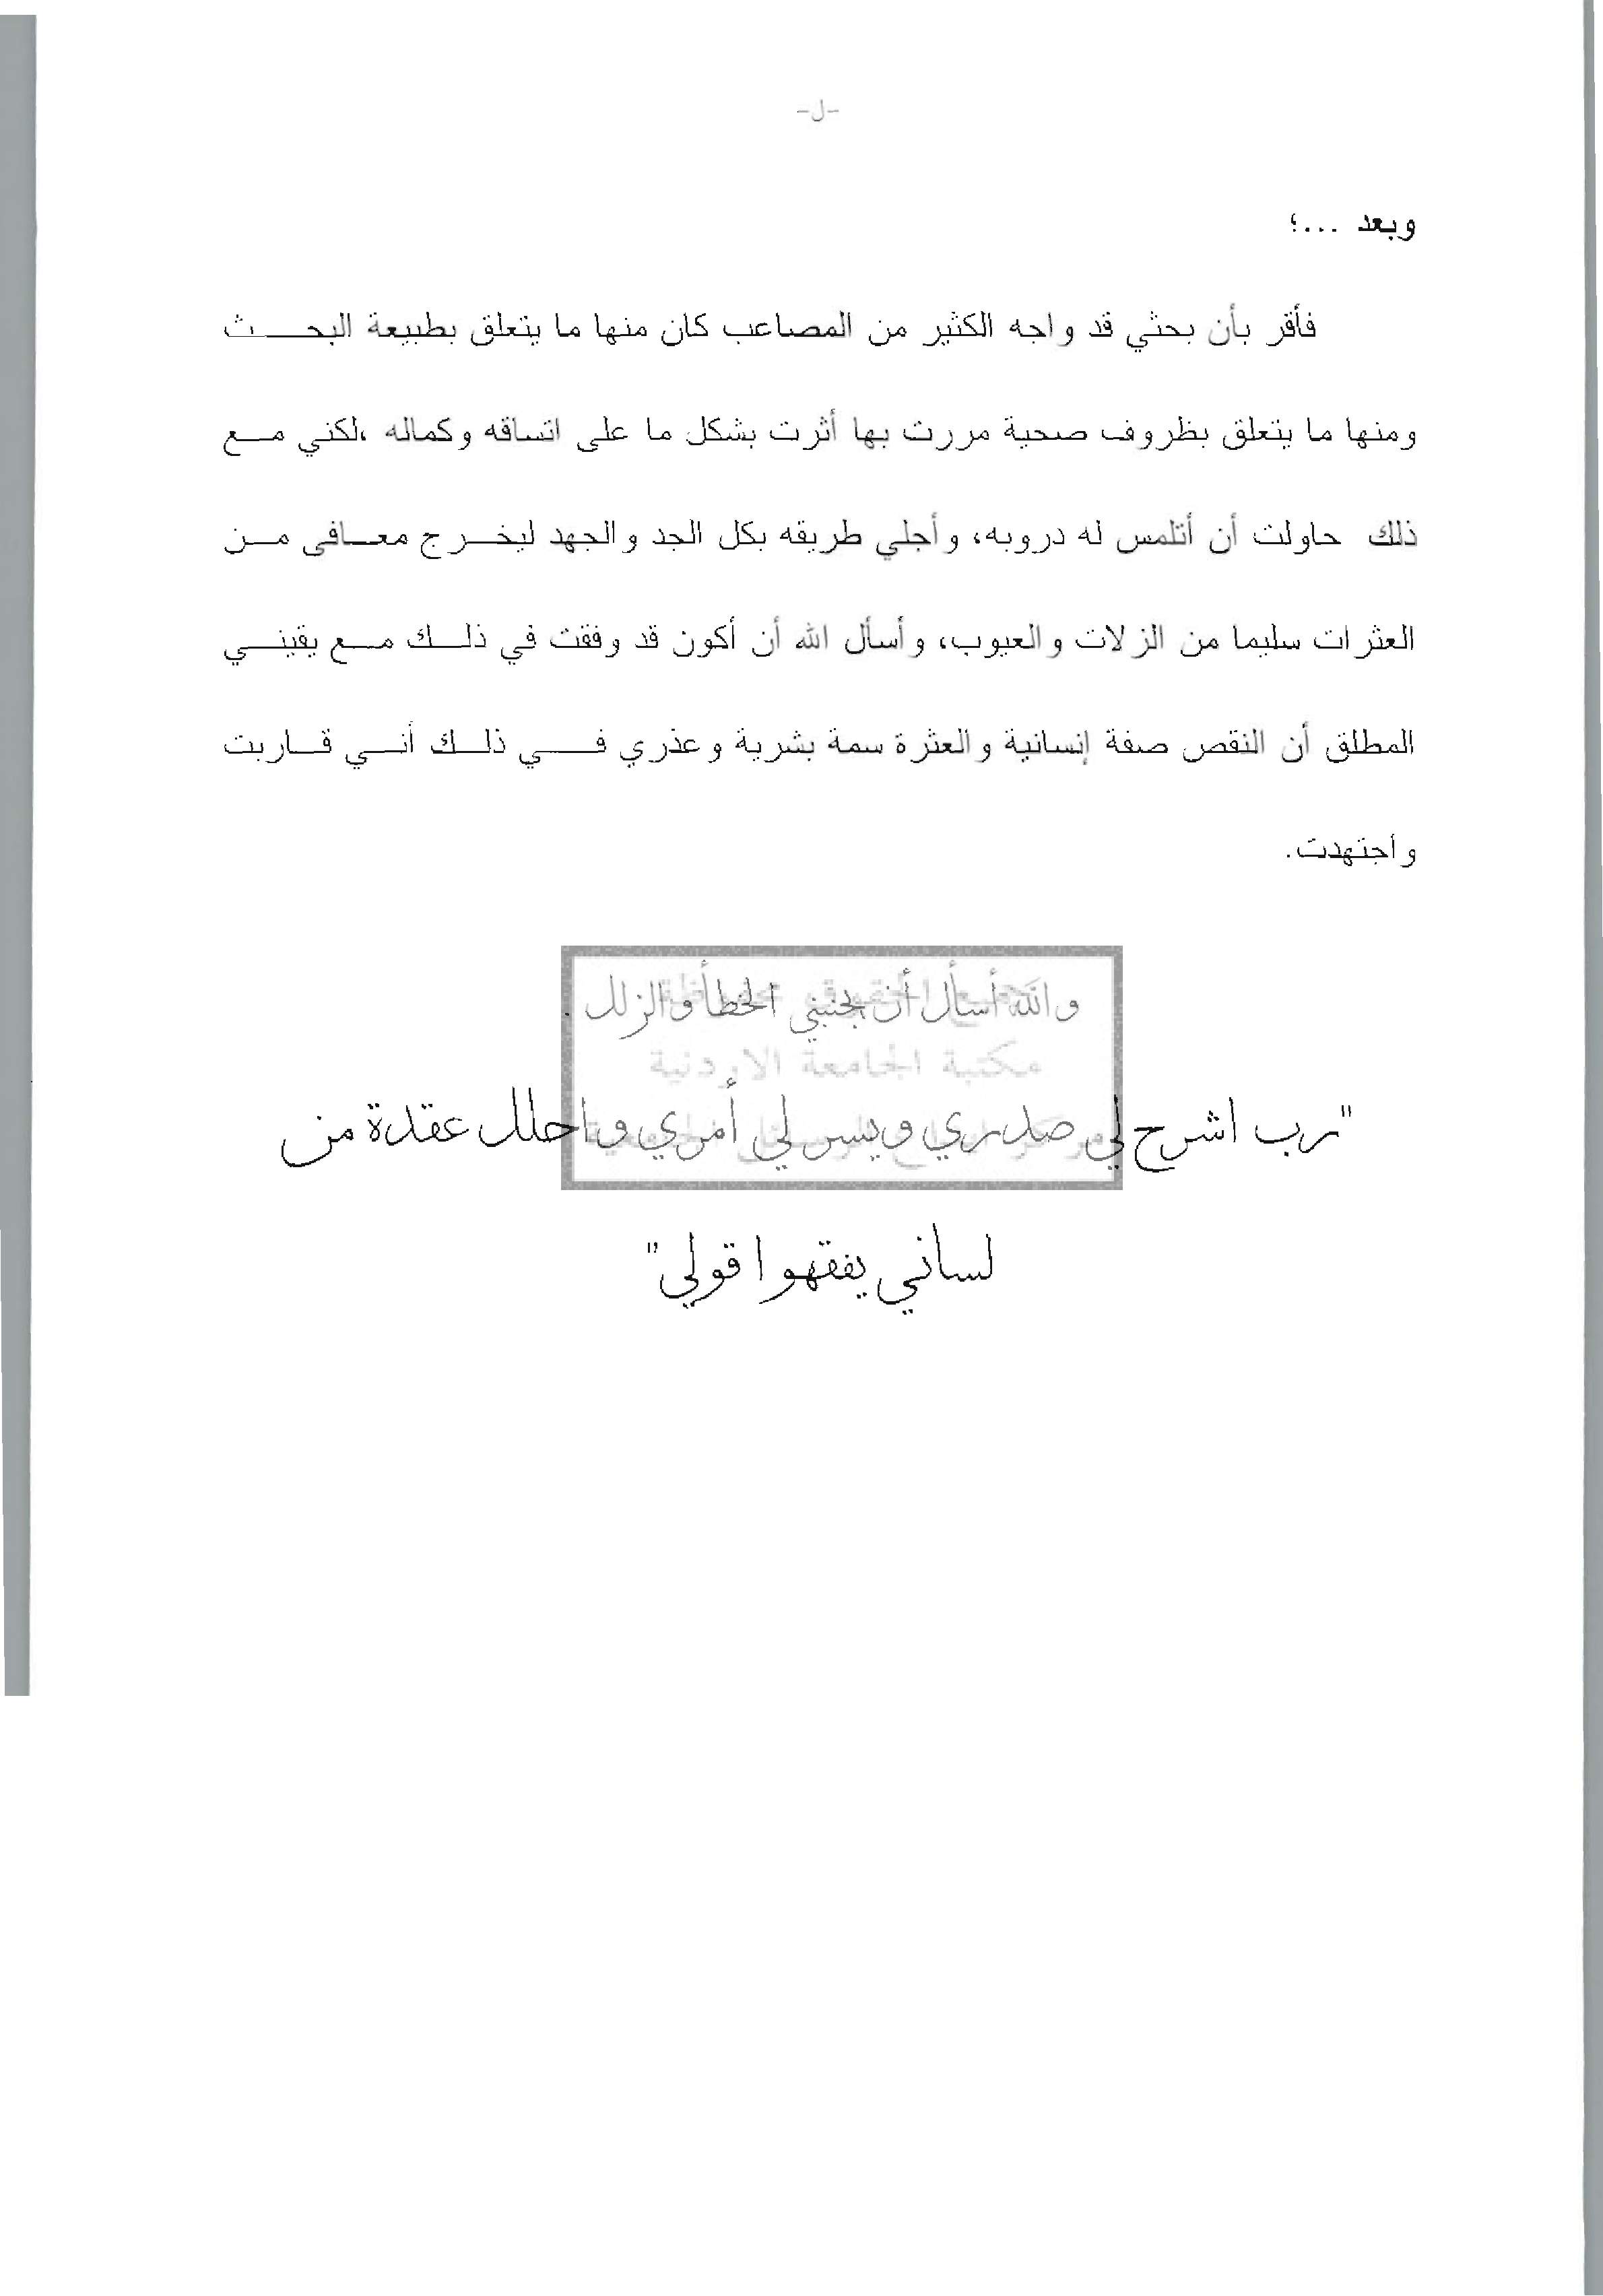 -ل-
وبعد ...؛
فأقر بأن بحثي قد واجه الكثير من المصاعب كان منها ما يتعلق بطبيعة البحث
ومنها ما يتعلق بظروف صحية مررت بها أثرت بشكل ما على اتساقه وكماله ،لكني مع
ذلك حاولت أن أتلمس له دروبه، وأجلي طريقه بكل الجد والجهد ليخرج معافى من
العثرات سليما من الزلات والعيوب، وأسأل الله أن أكون قد وفقت في ذلك مع يقيني
المطلق أن النقص صفة إنسانية والعثرة سمة بشرية وعذري في ذلك أني قاربت
وأجتهدت.
والله أسأل أن يجنبني الخطأ والزلل .
مكتبة الجامعة الاردنية
"رب اشرح لي صدري ويسر لي أمري واحلل عقدة من
لساني يفقهوا قولي"